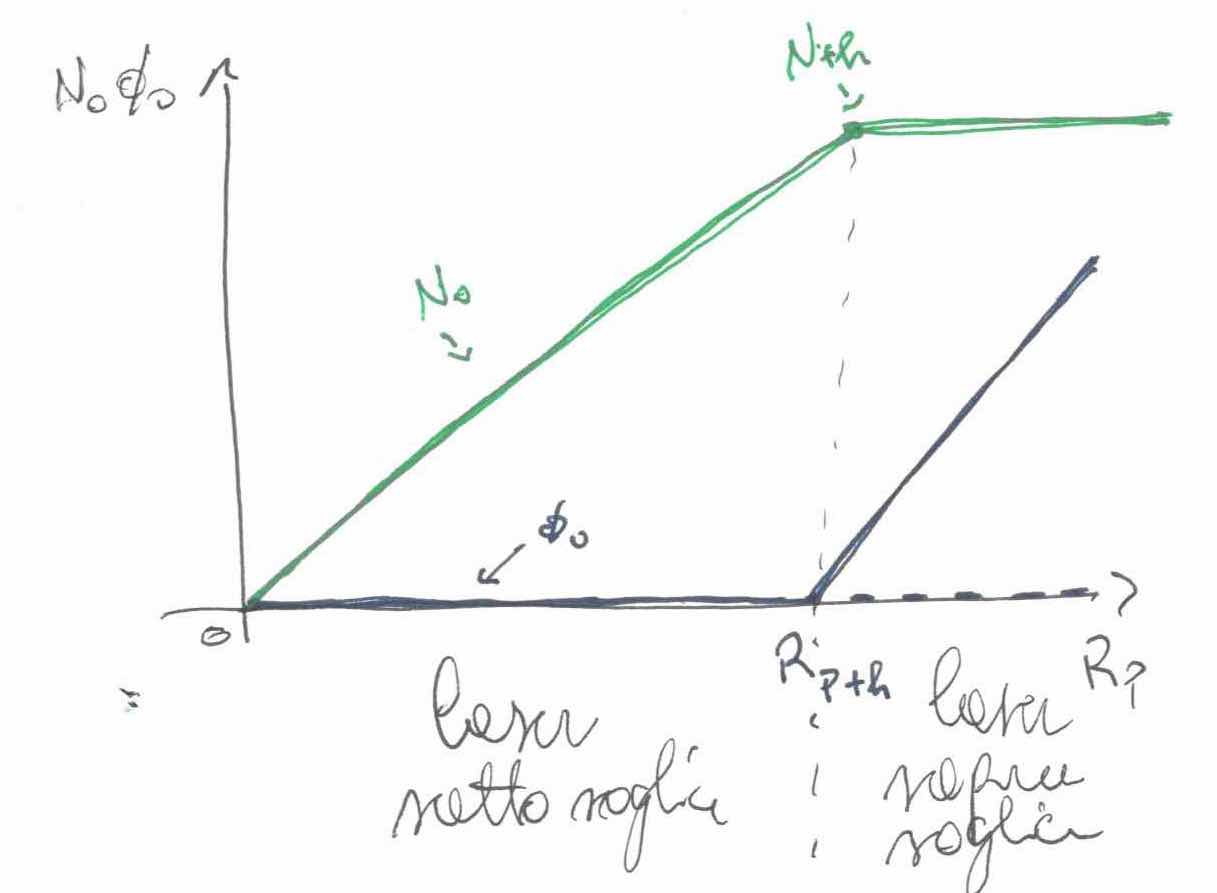 N₀ ϕ₀
Nth
N₀
ϕ₀
0
RPth
RP
laser
sotto soglia
laser
sopra
soglia